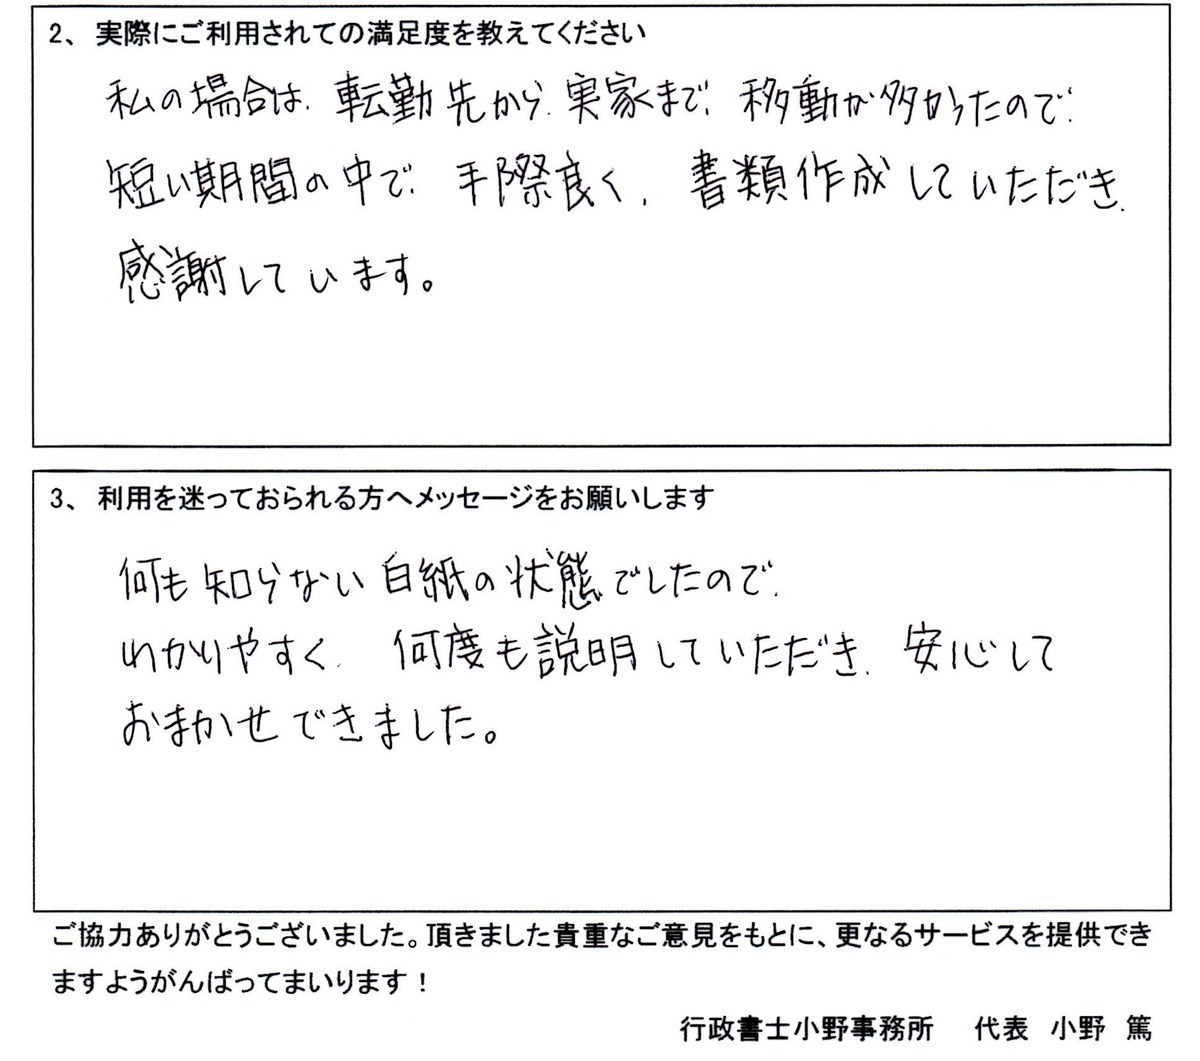 2、 実際にご利用されての満足度を教えてください
私の場合は、転勤先から、実家まで、移動が多かったので、
短い期間の中で、手際良く、書類作成していただき、
感謝しています。
3、 利用を迷っておられる方へメッセージをお願いします
何も知らない白紙の状態でしたので、
わかりやすく、何度も説明していただき、安心して
おまかせできました。
ご協力ありがとうございました。頂きました貴重なご意見をもとに、更なるサービスを提供でき
ますようがんばってまいります！
行政書士小野事務所　代表　小野　篤